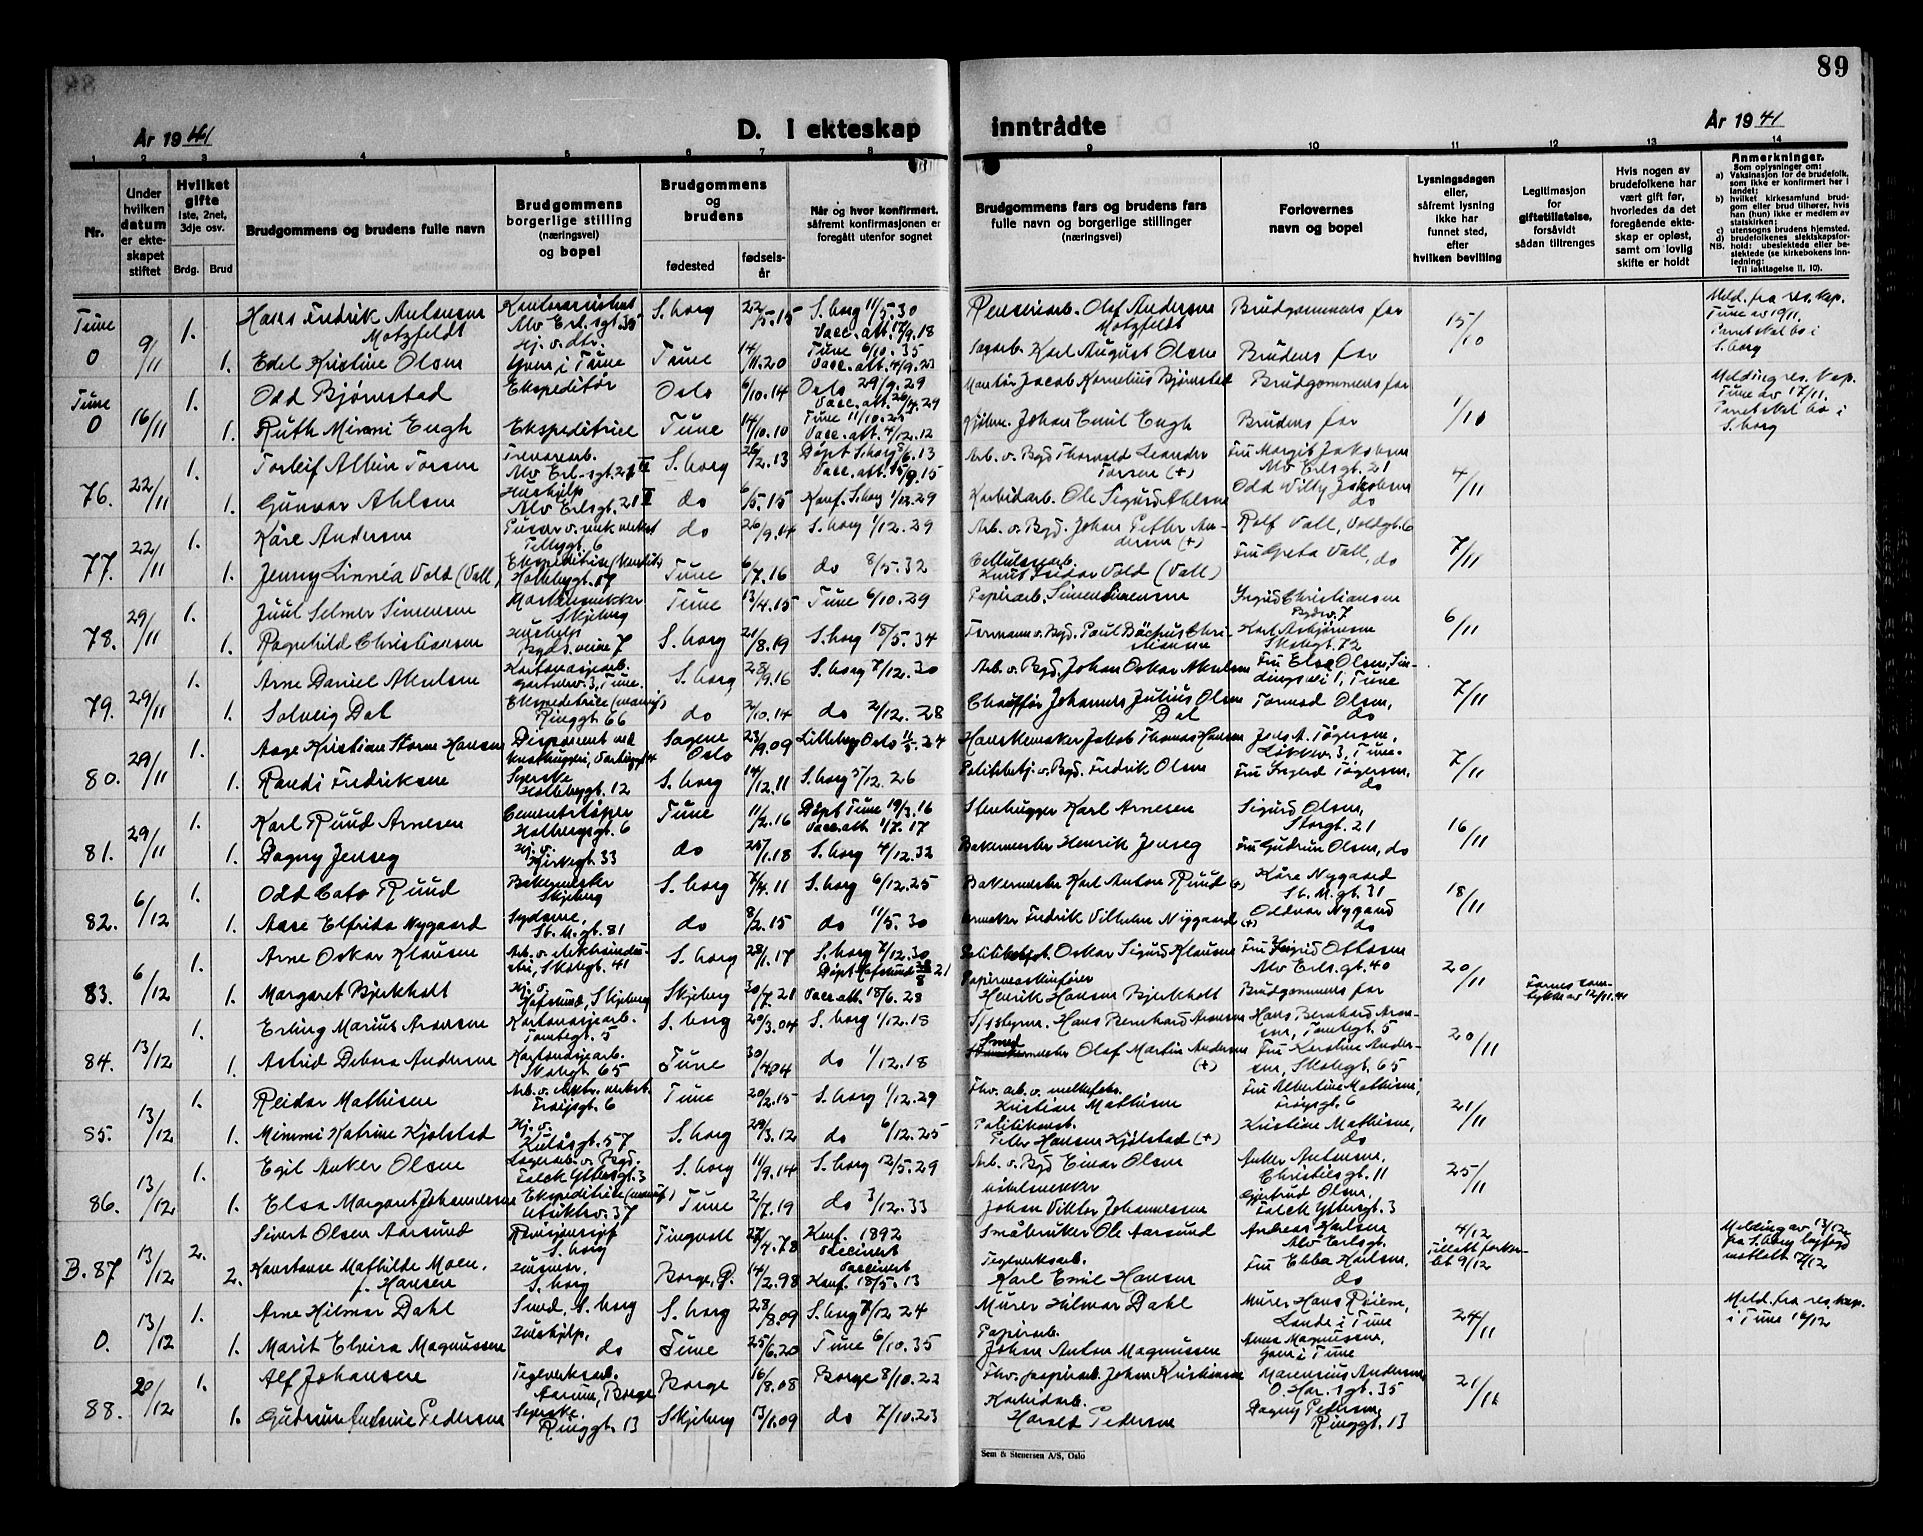 89
År 1941
D. I ekteskap inntrådte
År 1941
1 2 3 4 5 6 7 8 9 10 11 12 13 14
Nr.
Under hvilken datum er ekteskapet stiftet
Hvilket gifte 1ste, 2net, 3dje osv.
Brdg. Brud
Brudgommens og brudens fulle navn
Brudgommens borgerlige stilling (næringsvei) og bopel
Brudgommens og brudens
fødested
fødselsår
Når og hvor konfirmert, såfremt konfirmasjonen er foregått utenfor sognet
Brudgommens fars og brudens fars fulle navn og borgerlige stillinger (næringsvei)
Forlovernes navn og bopel
Lysningsdagen eller, såfremt lysning ikke har funnet sted, efter hvilken bevilling
Legitimasjon for giftetillatelse, forsåvidt sådan tiltrenges
Hvis nogen av brudefolkene har vært gift før, hvorledes da det foregående ekteskap er opløst, samt om lovlig skifte er holdt
Anmerkninger.
Som oplysninger om:
a) Vaksinasjon for de brudefolk, som ikke er konfirmert her i landet;
b) hvilket kirkesamfund brudgom eller brud tilhører, hvis han (hun) ikke er medlem av statskirken;
c) utensogns brudens hjemsted.
d) brudefolkenes slektskapsforhold: ubeslektede eller beslektede (se kirkebokens innledning:
NB. Til iakttagelse 11, 10).
Tune 0 9/11 1. Hans Fredrik Antonsen Motzfeldt Alv Erl. sgt. 35 S.borg 22/5.15 S.borg 11/5.30 Vacc.att. 17/9.18 Olaf Andersen Motzfeldt Brudgommens far 15/10 Meld. fra res. kap. Tune av 19/11. Paret skal bo i S.borg
1. Edel Kristine Olsen Hj. v. dtr. Tune 14/11.20 Tune 6/10.35 Vacc.att. 4/9.23 Sagarb. Karl August Olsen Brudens far
Tune 0 16/11 1. Odd Bjørnstad Ekspeditør Oslo 6/10.14 Oslo 29/9.29 Montør Jacob Kornelius Bjørnstad Brudgommens far 1/10 Melding res. kap. Tune av 17/11. Paret skal bo i S.borg
1. Ruth Mimmi Engh Ekspeditrise Tune 14/10.10 Tune 11/10.25 Vacc.att. 4/12.12 Johan Emil Engh Brudens far
76. 22/11 1. Torleif Albin Torsen Alv Erl. sgt. 21 S.borg 26/2.13 Døpt S.borg 5/6.13 Arb. v. Bgd Thorvald Leander Torsen (+) Fru Margit Jakobsen Alv Erlsgt. 21 4/11
1. Gunvor Ahlsen Hushjelp Alv Erlsgt. 21 do 6/5.15 Konf. S.borg 1/12.29 Karbidarb. Ole Sigurd Ahlsen Odd Willy Jakobsen do
77. 22/11 1. Kåre Andersen do 26/9.14 S.borg 1/12.29 Arb. v. Bgd. Johan Petter Andersen (+) Rolf Vall, Voldgt. 6 7/11
1. Jenny Linnéa Vold (Vall) Tune 6/7.16 do 8/5.32 Cellulosearb. Knut Isidor Vold (Vall) Fru Greta Vall, do
78. 29/11 1. Juul Selmer Simensen Skjeberg Tune 13/4.15 Tune 6/10.29 Papirarb. Simen Simensen Ingrid Christiansen 6/11
1. Ragnhild Christiansen Hushjelp S.borg 21/8.19 S.borg 18/5.34 Formann v. Bgd. Paul Bächus Christiansen Karl Asbjørnsen Skolegt. 72
79. 29/11 1. Arne Daniel Akselsen Kartonasjearb. S.borg 28/9.16 S.borg 7/12.30 Arb. v. Bgd. Johan Oskar Akselsen Fru Elsa Olsen, Tune 7/11
1. Solveig Dal Ekspeditrise Ringgt. 66 do 2/10.14 do 2/12.28 Chauffør Johannes Julius Olsen Dal Tormod Olsen, do
80. 29/11 1. Aage Kristian Storm Hansen Disponent Sagene Oslo 23/9.09 Lilleborg Oslo 11/5.24 Hanskemaker Jakob Thomas Hansen Jens A. Tøgersen, Løkkev. 3, Tune. 7/11
1. Randi Fredriksen Syerske Holbergt. 12 S.borg 14/12.11 S.borg 5/12.26 Politibetj. v. Bgd. Fredrik Olsen Fru Ingrid Tøgersen, do
81. 29/11 1. Karl Ruud Arnesen Cementstøper Holbergsgt. 6 Tune 11/2.16 Døpt Tune 19/3.16 Vacc.att. 1/7.17 Stenhugger Karl Arnesen Sigurd Olsen, Storgt. 21 16/11
1. Dagny Jenseg Hj. v. Kirkegt. 33 do 25/1.18 S.borg 4/12.32 Bakermester Henrik Jenseg Fru Gudrun Olsen, do
82. 6/12 1. Odd Cato Ruud Bakermester Skjeberg S.borg 7/4.11 S.borg 6/12.25 Bakermester Karl Anton Ruud Kåre Nygaard St. M. gt. 31 18/11
1. Aase Elfrida Nygaard Sydame, St. M. gt. 81 do 8/2.15 do 11/5.30 Fredrik Vilhelm Nygaard (+) Oddvar Nygaard do
83. 6/12 1. Arne Oskar Klausen Skolegt. 41 S.borg 28/1.17 S.borg 7/12.30 Oskar Sigurd Klausen Fru Ingrid Ottosen Alv Erls.gt. 40 20/11
1. Margaret Bjerkholt Hj. v. Hafslund, Skjeberg Skjeberg 30/7.21 Døpt Hafslund 28/8 21 Vacc.att. 18/6.28 Papirmaskinfører Henrik Hansen Bjerkholt Brudgommens far
84. 13/12 1. Erling Marius Aronsen Kartonasjearb. Tomtegt. 5 S.borg 20/3.04 S.borg 1/12.18 Hans Bernhard Aronsen Hans Bernhard Aronsen, Tomtegt. 5 20/11
1. Astrid Debora Andersen Kartonasjearb. Skolegt. 65 Tune 30/4.04 do 1/12.18 Olaf Martin Andersen (+) Fru Kirstine Andersen, Skolegt. 65
85. 13/12 1. Reidar Mathisen Frøisgt. 6 Tune 20/2.15 S.borg 1/12.29 Kristian Mathisen Fru Albertine Mathisen, Frøisgt. 6 21/11
1. Mimmi Katrine Kjølstad Hj. v. Kulåsgt. 57 S.borg 29/3.12 do 6/12.25 Politikonst. Peter Hansen Kjølstad (+) Kristine Mathisen, do
86. 13/12 1. Egil Anker Olsen Lagerarb. v. Bgd. Falck Yttersgt. 3 S.borg 11/9.14 S.borg 12/5.29 Arb. v. Bgd Einar Olsen Anker Antonsen, Christiesgt. 11 25/11
1. Elsa Margaret Johannessen Ekspeditrise Utsiktsv. 37 Tune 2/7.19 do 3/12.33 Johan Viktor Johannessen Gjertrud Olsen, Falck Yttersgt. 3
B. 87 13/12 2. Sivert Olsen Aarsund Revisjonssjef S.borg Tingvoll 27/4.78 Konf. 1892 Vaccinert Småbruker Ole Aarsund Andreas Karlsen Alv Erlsgt. 4/12 Melding av 13/12 fra S.borg byfogd mottatt 17/12
2. Konstanse Mathilde Moen, f. Hansen Husmor, S.borg Borge, Ø. 14/2.98 Vaccinert Konf. 18/5.13 Teglverksarb. Karl Emil Hansen Fru Ebba Karlsen, do
0. 13/12 1. Arne Hilmar Dahl Smed, S.borg S.borg 28/8.09 S.borg 7/12 24 Murer Hilmar Dahl Murer Hans Røiem, Lande i Tune 24/11 Meld. fra res. kap. i Tune 16/12
1. Marit Elvira Magnussen Hushjelp, do Tune 25/6.20 Tune 6/10.35 Papirarb. Johan Anton Magnussen Anna Magnussen, Tune
88. 20/12 1. Alf Johansen Teglverksarb. Aarum, Borge Borge 16/8.08 Borge 8/10.22 Johan Kristiansen Marensius Andersen O. Har. sgt. 35 21/11
1. Gudrun Pedersen Syerske, Ringgt. 13 Skjeberg 13/1.09 do 7/10.23 Karbidarb. Harald Pedersen Dagny Pedersen, Ringgt. 13
Sem & Stenersen A/S, Oslo